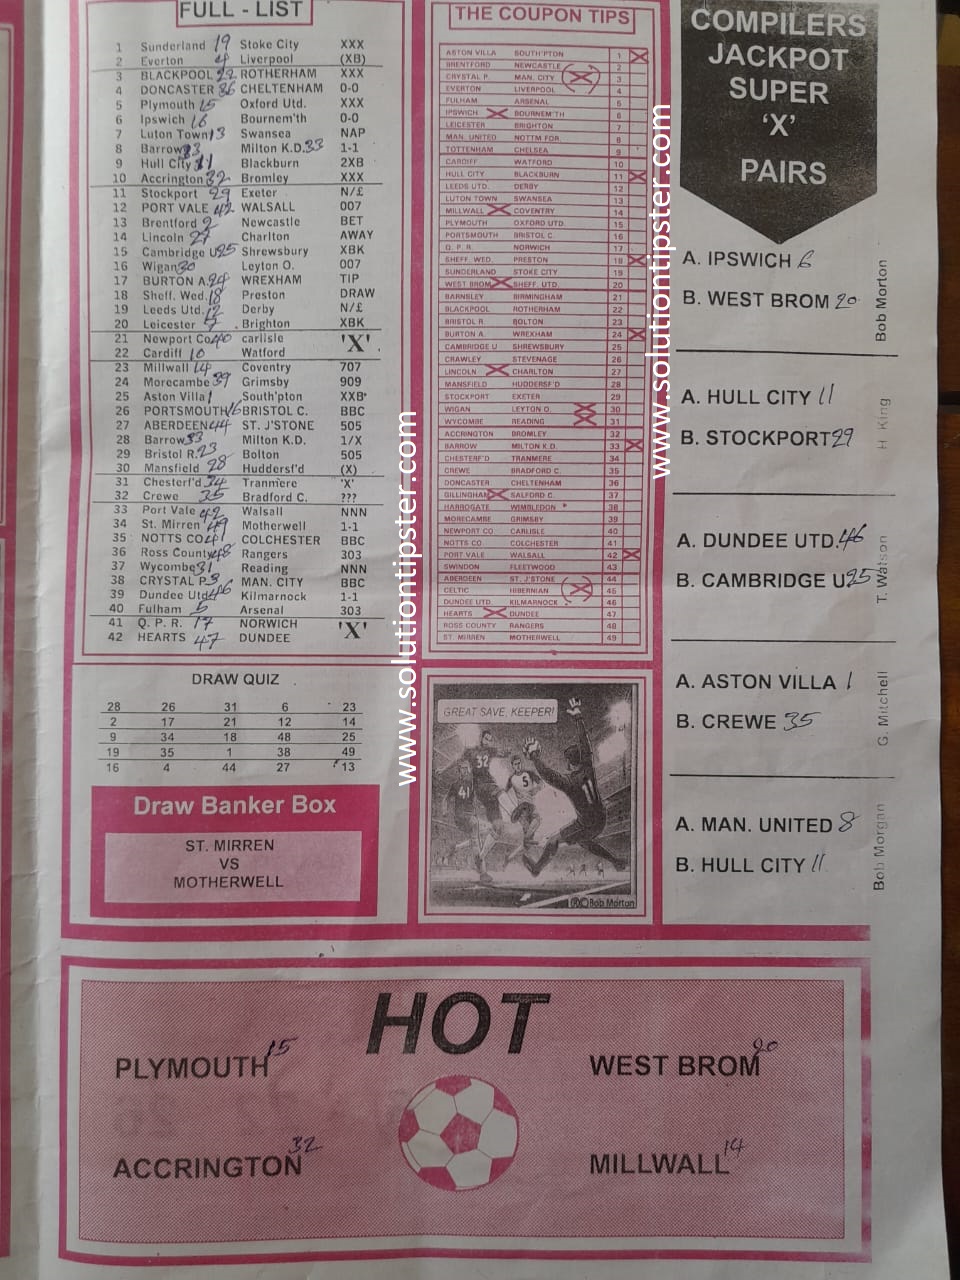 FULL - LIST
1 Sunderland 19 Stoke City XXX
2 Everton 4 Liverpool (XB)
3 BLACKPOOL 22 ROTHERHAM XXX
4 DONCASTER 36 CHELTENHAM 0-0
5 Plymouth 15 Oxford Utd. XXX
6 Ipswich 6 Bournem'th 0-0
7 Luton Town 13 Swansea NAP
8 Barrow 33 Milton K.D. 33 1-1
9 Hull City 11 Blackburn 2XB
10 Accrington 32 Bromley XXX
11 Stockport 29 Exeter N/£
12 PORT VALE 42 WALSALL 007
13 Brentford 2 Newcastle BET
14 Lincoln 27 Charlton AWAY
15 Cambridge U 25 Shrewsbury XBK
16 Wigan 30 Leyton O. 007
17 BURTON A. 24 WREXHAM TIP
18 Sheff. Wed. 18 Preston DRAW
19 Leeds Utd. 12 Derby N/£
20 Leicester 7 Brighton XBK
21 Newport Co 40 carlisle 'X'
22 Cardiff 10 Watford
23 Millwall 14 Coventry 707
24 Morecambe 39 Grimsby 909
25 Aston Villa 1 South'pton XXB
26 PORTSMOUTH 16 BRISTOL C. BBC
27 ABERDEEN 44 ST. J'STONE 505
28 Barrow 33 Milton K.D. 1/X
29 Bristol R. 23 Bolton 505
30 Mansfield 28 Huddersf'd (X)
31 Chesterf'd 34 Tranmere 'X'
32 Crewe 35 Bradford C. ???
33 Port Vale 42 Walsall NNN
34 St. Mirren 49 Motherwell 1-1
35 NOTTS CO 41 COLCHESTER BBC
36 Ross County 48 Rangers 303
37 Wycombe 31 Reading NNN
38 CRYSTAL P. 3 MAN. CITY BBC
39 Dundee Utd 46 Kilmarnock 1-1
40 Fulham 5 Arsenal 303
41 Q. P. R. 17 NORWICH 'X'
42 HEARTS 47 DUNDEE
DRAW QUIZ
28 26 31 6 23
2 17 21 12 14
9 34 18 48 25
19 35 1 38 49
16 4 44 27 13
Draw Banker Box
ST. MIRREN
VS
MOTHERWELL
THE COUPON TIPS
ASTON VILLA SOUTH'PTON 1
BRENTFORD NEWCASTLE 2
CRYSTAL P. MAN. CITY 3
EVERTON LIVERPOOL 4
FULHAM ARSENAL 5
IPSWICH BOURNEM'TH 6
LEICESTER BRIGHTON 7
MAN. UNITED NOTTM FOR. 8
TOTTENHAM CHELSEA 9
CARDIFF WATFORD 10
HULL CITY BLACKBURN 11
LEEDS UTD. DERBY 12
LUTON TOWN SWANSEA 13
MILLWALL COVENTRY 14
PLYMOUTH OXFORD UTD. 15
PORTSMOUTH BRISTOL C. 16
Q. P. R. NORWICH 17
SHEFF. WED. PRESTON 18
SUNDERLAND STOKE CITY 19
WEST BROM SHEFF. UTD. 20
BARNSLEY BIRMINGHAM 21
BLACKPOOL ROTHERHAM 22
BRISTOL R. BOLTON 23
BURTON A. WREXHAM 24
CAMBRIDGE U SHREWSBURY 25
CRAWLEY STEVENAGE 26
LINCOLN CHARLTON 27
MANSFIELD HUDDERSF'D 28
STOCKPORT EXETER 29
WIGAN LEYTON O. 30
WYCOMBE READING 31
ACCRINGTON BROMLEY 32
BARROW MILTON K.D. 33
CHESTERF'D TRANMERE 34
CREWE BRADFORD C. 35
DONCASTER CHELTENHAM 36
GILLINGHAM SALFORD C. 37
HARROGATE WIMBLEDON 38
MORECAMBE GRIMSBY 39
NEWPORT CO CARLISLE 40
NOTTS CO. COLCHESTER 41
PORT VALE WALSALL 42
SWINDON FLEETWOOD 43
ABERDEEN ST. J'STONE 44
CELTIC HIBERNIAN 45
DUNDEE UTD. KILMARNOCK 46
HEARTS DUNDEE 47
ROSS COUNTY RANGERS 48
ST. MIRREN MOTHERWELL 49
GREAT SAVE, KEEPER!
32
41
5
11
®©Bob Morton
COMPILERS
JACKPOT
SUPER
'X'
PAIRS
A. IPSWICH 6
B. WEST BROM 20
Bob Morton
A. HULL CITY 11
B. STOCKPORT 29
H. King
A. DUNDEE UTD. 46
B. CAMBRIDGE U 25
T. Watson
A. ASTON VILLA 1
B. CREWE 35
G. Mitchell
A. MAN. UNITED 8
B. HULL CITY 11
Bob Morgan
www.solutiontipster.com
www.solutiontipster.com
HOT
PLYMOUTH 15
WEST BROM 20
ACCRINGTON 32
MILLWALL 14